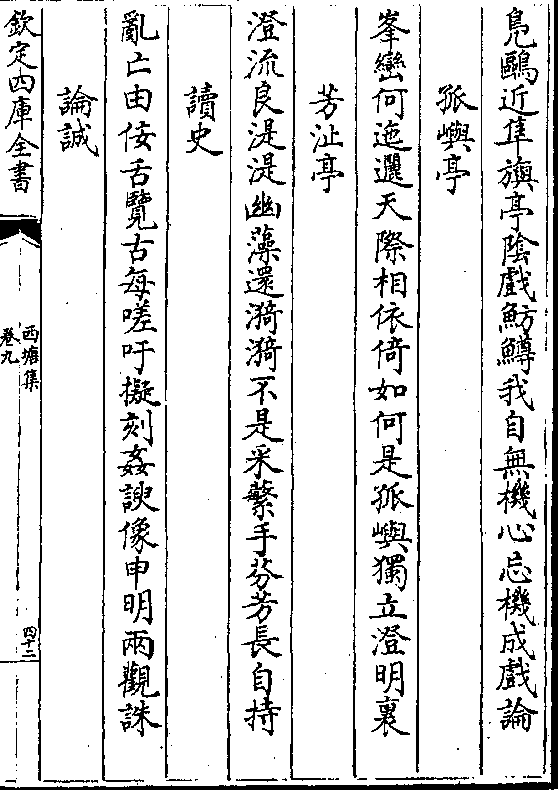 鳬鷗近隼旟亭陰戲魴鱒我自無機心忘機成戲論
孤嶼亭
峯巒何迤邐天際相依倚如何是孤嶼獨立澄明裏
芳沚亭
澄流良湜湜幽藻還漪漪不是采蘩手芬芳長自持
讀史
亂亡由佞舌覽古每嗟吁擬刻姦諛像申明兩觀誅
論誠
欽定四庫全書
西塘集
卷九
四十二